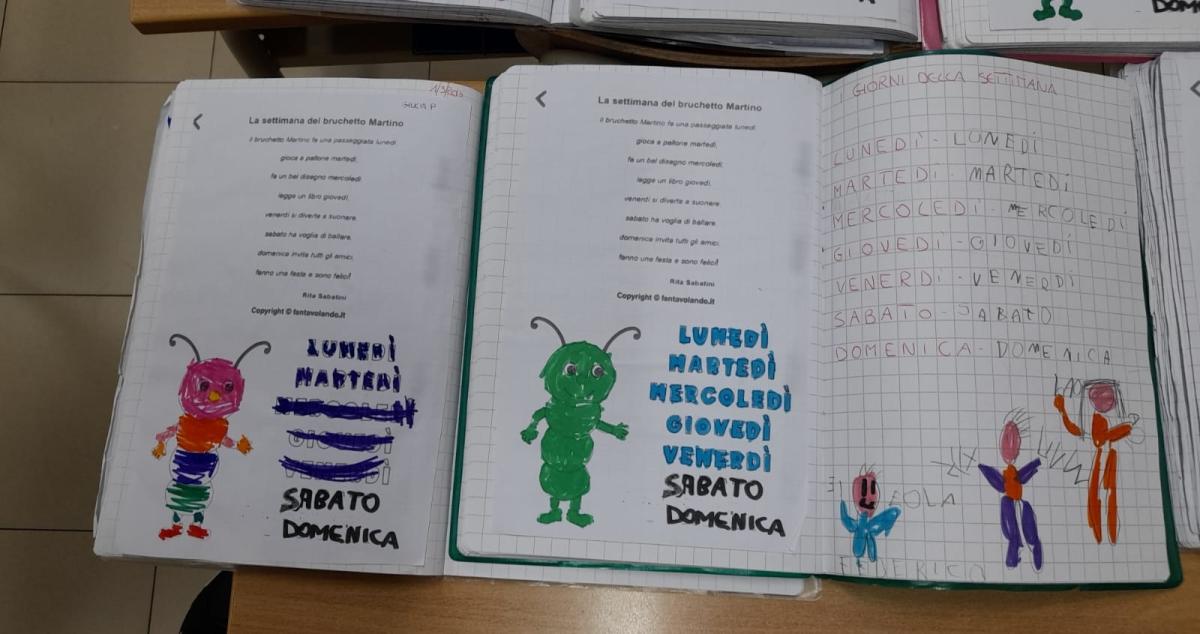 DOM
1/3/2023
GIULIA P
La settimana del bruchetto Martino
Il bruchetto Martino fa una passeggiata lunedì
gioca a pallone martedì,
fa un bel disegno mercoledì
legge un libro giovedì,
venerdì si diverte a suonare,
sabato ha voglia di ballare,
domenica invita tutti gli amici,
fanno una festa e sono felici!
Rita Sabatini
Copyright © fantavolando.it
LUNEDÌ
MARTEDÌ
MERCOLEDÌ
GIOVEDÌ
VENERDÌ
SABATO
DOMENICA
La settimana del bruchetto Martino
Il bruchetto Martino fa una passeggiata lunedì
gioca a pallone martedì,
fa un bel disegno mercoledì
legge un libro giovedì,
venerdì si diverte a suonare,
sabato ha voglia di ballare,
domenica invita tutti gli amici,
fanno una festa e sono felici!
Rita Sabatini
Copyright © fantavolando.it
LUNEDÌ
MARTEDÌ
MERCOLEDÌ
GIOVEDÌ
VENERDÌ
SABATO
DOMENICA
I GIORNI DELLA SETTIMANA
LUNEDÌ - LUNEDÌ
MARTEDÌ - MARTEDÌ
MERCOLEDÌ MERCOLEDÌ
GIOVEDÌ - GIOVEDÌ
VENERDÌ - VENERDÌ
SABATO - SABATO
DOMENICA - DOMENICA
FEDERICO